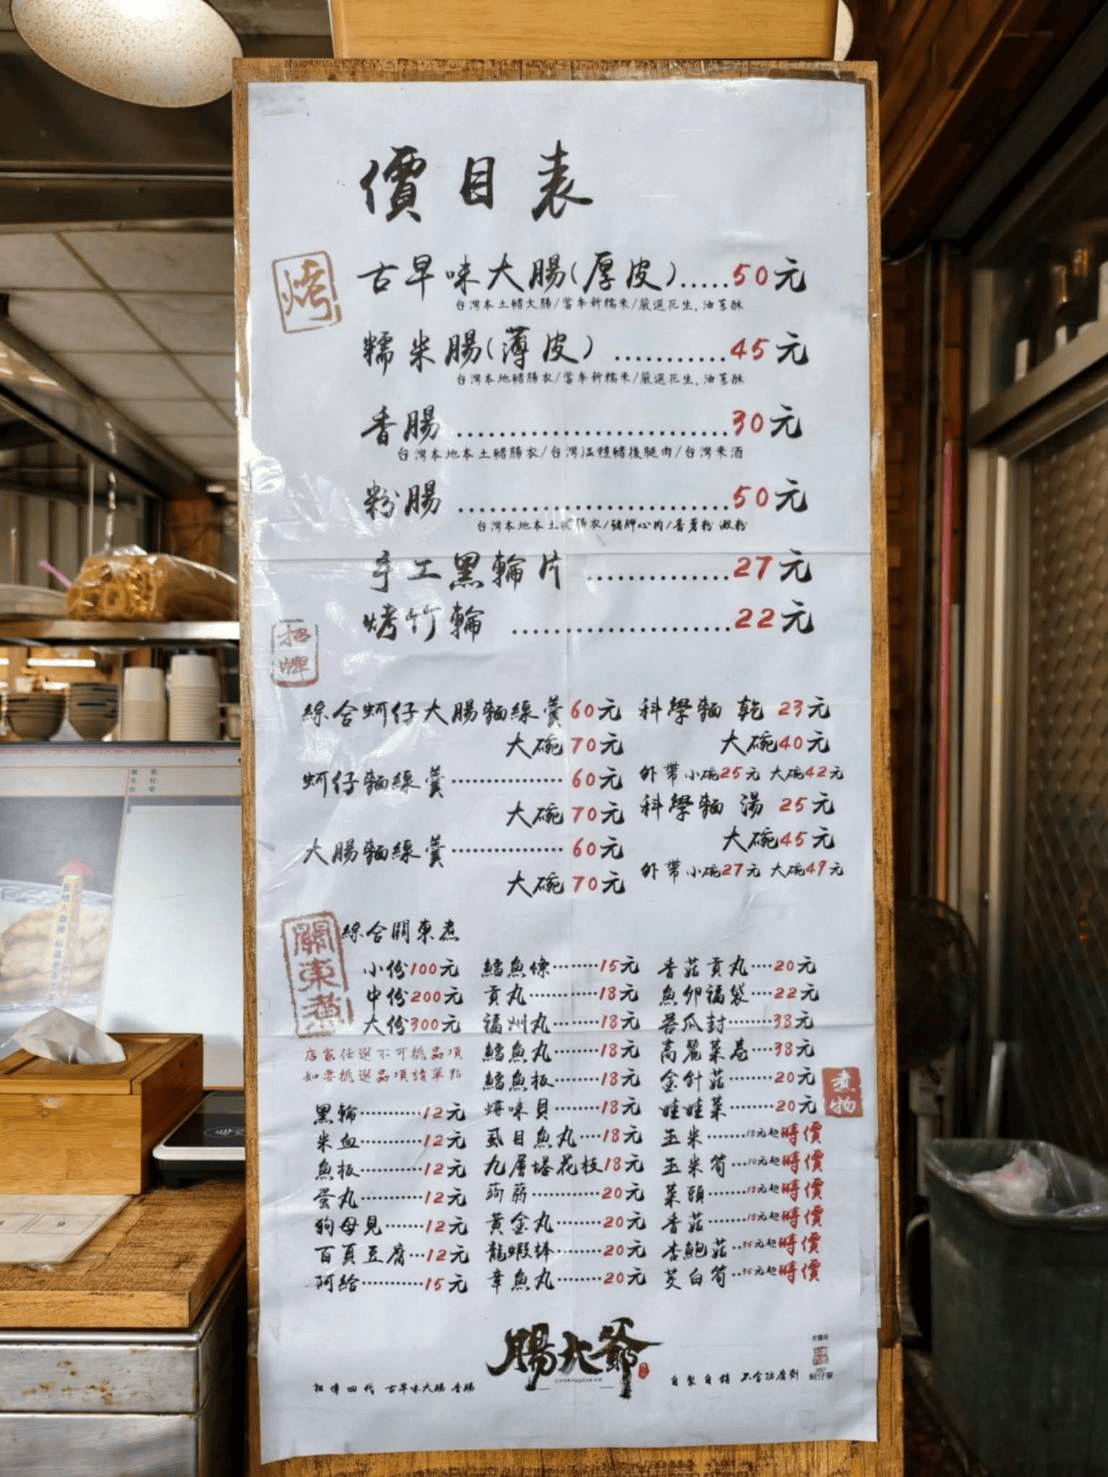 價目表
烤
古早味大腸(厚皮).....50元
台灣本土豬大腸/當季新糯米/嚴選花生.油蔥酥
糯米腸(薄皮)...........45元
台灣本地豬腸衣/當季新糯米/嚴選花生.油蔥酥
香腸............................30元
台灣本地本土豬腸衣/台灣溫體豬後腿肉/台灣米酒
粉腸............................50元
台灣本地本土豬腸衣/豬胛心肉/番薯粉 澱粉
手工黑輪片...............27元
烤竹輪.......................22元
招牌
綜合蚵仔大腸麵線羹60元
大碗70元
蚵仔麵線羹...............60元
大碗70元
大腸麵線羹...............60元
大碗70元
科學麵 乾 23元
大碗40元
外帶小碗25元 大碗42元
科學麵 湯 25元
大碗45元
外帶小碗27元 大碗49元
關東煮
綜合關東煮
小份100元
中份200元
大份300元
店家任選不可挑品項
如要挑選品項請單點
黑輪...........12元
米血...........12元
魚板...........12元
蛋丸...........12元
狗母見.......12元
百頁豆腐...12元
阿給...........15元
鱈魚條........15元
貢丸............18元
福州丸........18元
鱈魚丸........18元
鱈魚板........18元
蟳味貝........18元
虱目魚丸....18元
九層塔花枝18元
蒟蒻............20元
黃金丸........20元
龍蝦棒........20元
章魚丸........20元
香菇貢丸....20元
魚卵福袋....22元
苦瓜封........38元
高麗菜卷....38元
金針菇........20元
娃娃菜........20元
煮物
玉米......18元起時價
玉米筍...10元起時價
菜頭......18元起時價
香菇......18元起時價
杏鮑菇..35元起時價
茭白筍..35元起時價
腸大爺
CHANGDAYE
祖傳四代 古早味大腸 香腸
自製自銷 不含防腐劑
蚵仔寮